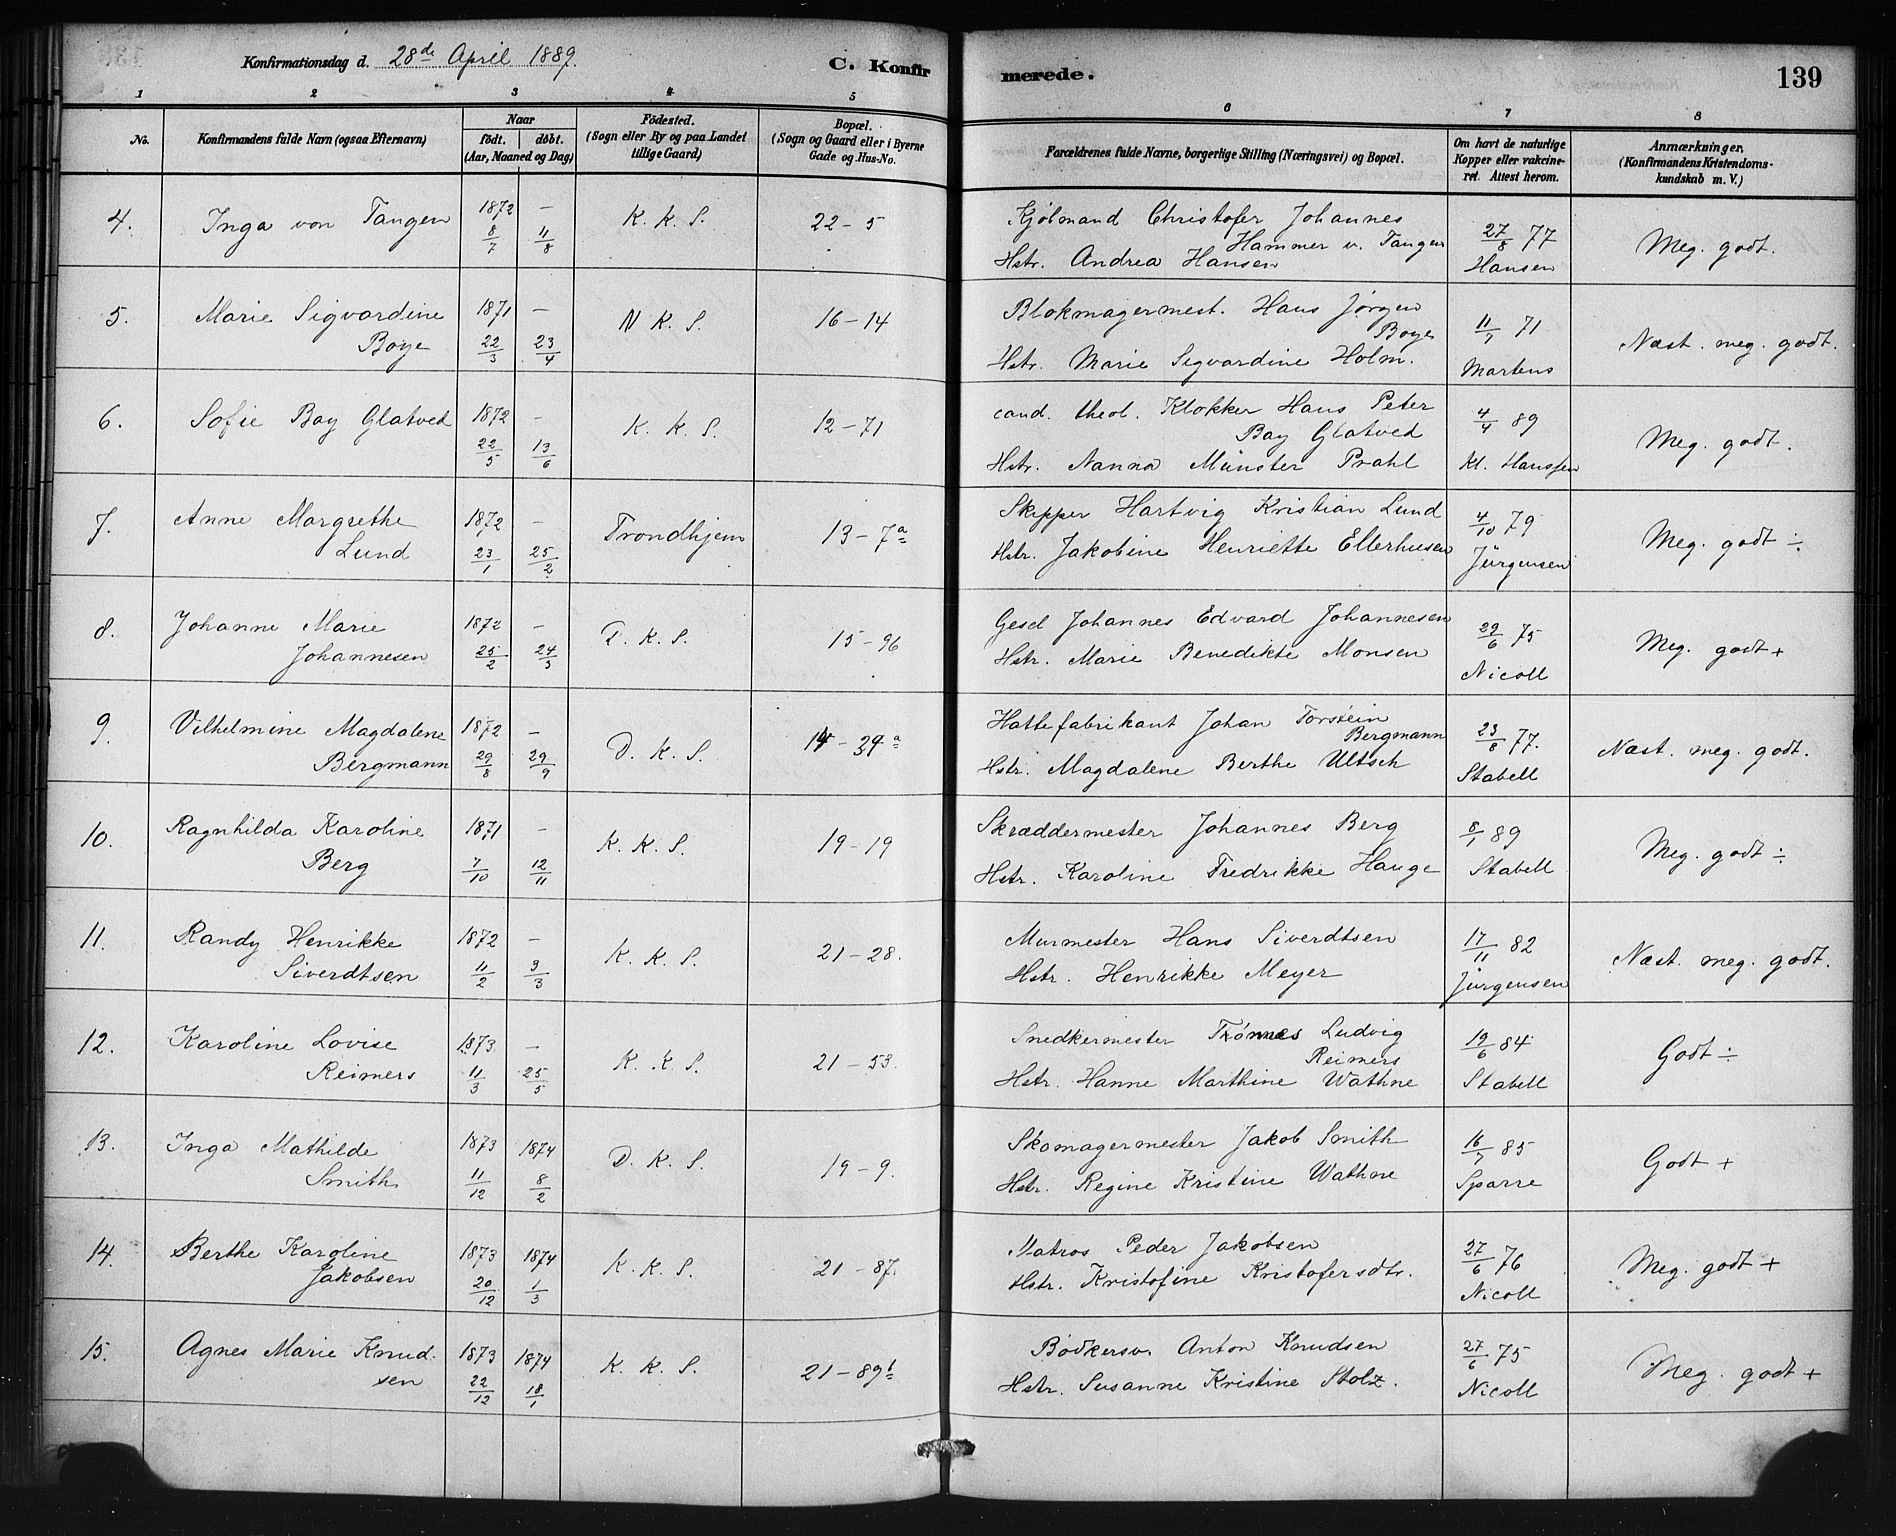 Konfirmationsdag d. 28de April 1889. C. Konfirmerede. 139
1 2 3 4 5 6 7 8
No. Konfirmandens fulde Navn (ogsaa Efternavn) Naar født. døbt. (Aar, Maaned og Dag) Fødested. (Sogn eller By og paa Landet tillige Gaard) Bopæl. (Sogn og Gaard eller i Byerne Gade og Hus-No. Forældrenes fulde Navne, borgerlige Stilling (Næringsvei) og Bopæl. Om havt de naturlige Kopper eller vakcineret. Attest herom. Anmærkninger, (Konfirmandens Kristendomskundskab m. V.)
4. Inga von Tangen 1872 8/7 — 11/8 K. K. S. 22-5 Kjølmand Christofer Johannes Hammer v. Tangen
Hstr. Andrea Hansen 27/8 77 Hansen Meg. godt.
5. Marie Sigvardine Boye 1871 22/3 — 23/4 N K. S. 16-14 Blokmagermest. Hans Jørgen Boye
Hstr. Marie Sigvardine Holm. 11/7 71 Martens Næst. meg. godt.
6. Sofie Bay Glatved 1872 22/5 — 13/6 K. K. S. 12-71 cand. theol. Klokker Hans Peter Bay Glatved
Hstr. Nanna Münster Prahl 4/4 89 Kl. Hanssen Meg. godt.
7. Anne Margrethe Lund 1872 23/1 — 25/2 Trondhjem 13-7a Skipper Hartvig Kristian Lund
Hstr. Jakobine Henriette Ellerhusen 4/10 79 Jürgensen Meg. godt ÷
8. Johanne Marie Johannesen 1872 25/2 — 24/3 D. K. S. 15-96 Gesel Johannes Edvard Johannesen
Hstr. Marie Benedikte Monsen 29/6 75 Nicoll Meg. godt +
9. Vilhelmine Magdalene Bergmann 1872 29/8 — 29/9 D. K. S. 14-24a Hattefabrikant Johan Torstein Bergmann
Hstr. Magdalene Berthe Ultsch 23/8 77. Stabell Næst. meg. godt.
10. Ragnhilda Karoline Berg 1871 7/10 — 12/11 K. K. S. 19-19 Skræddermester Johannes Berg
Hstr. Karoline Fredrikke Hauge 8/1 89 Stabell Meg. godt ÷
11. Randy Henrikke Siverdtsen 1872 11/2 — 3/3 K. K. S. 21-28. Murmester Hans Siverdtsen
Hstr. Henrikke Meyer 17/11 82 Jürgensen Næst. meg. godt.
12. Karoline Lovise Reimers 1873 11/3 — 25/5 K. K. S. 21-53. Snedkermester Tønnes Ludvig Reimers
Hstr. Hanne Marthine Wathne 19/6 84 Stabell Godt ÷
13. Inga Mathilde Smith 1873 11/12 1874 8/2 D. K. S. 19-9. Skomagermester Jakob Smith
Hstr. Regine Kristine Wathne 16/7 85 Sparre Godt +
14. Berthe Karoline Jakobsen 1873 20/12 1874 1/3 K. K. S. 21-87. Matros Peder Jakobsen
Hstr. Kristofine Kristofersdtr. 27/6 76 Nicoll Meg. godt +
15. Agnes Marie Knudsen 1873 22/12 1874 18/1 K. K. S. 21-89b Bødkersv. Anton Knudsen
Hstr. Susanne Kristine Stolz. 27/6 75 Nicoll Meg. godt +